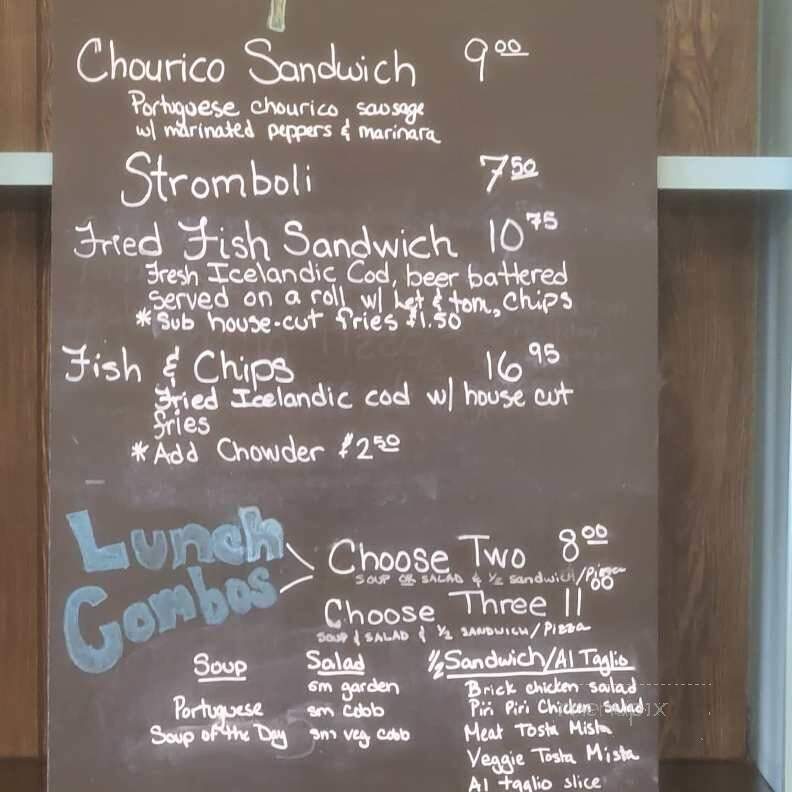 Chourico Sandwich 9.00
Portuguese chourico sausage
w/ marinated peppers & marinara
Stromboli 7.50
Fried Fish Sandwich 10.75
Fresh Icelandic Cod, beer battered
served on a roll w/ let & tom, chips
*Sub house-cut fries $1.50
Fish & Chips 16.95
Fried Icelandic cod w/ house cut
fries
*Add Chowder $2.50
Lunch Combos
Choose Two 8.00
SOUP OR SALAD & 1/2 Sandwich/Pizza
Choose Three 11.00
SOUP & SALAD & 1/2 SANDWICH/PIZZA
Soup Salad 1/2 Sandwich/Al Taglio
sm garden Brick chicken salad
Portuguese sm cobb Piri Piri Chicken salad
Soup of the Day sm veg cobb Meat Tosta Mista
Veggie Tosta Mista
Al taglio slice